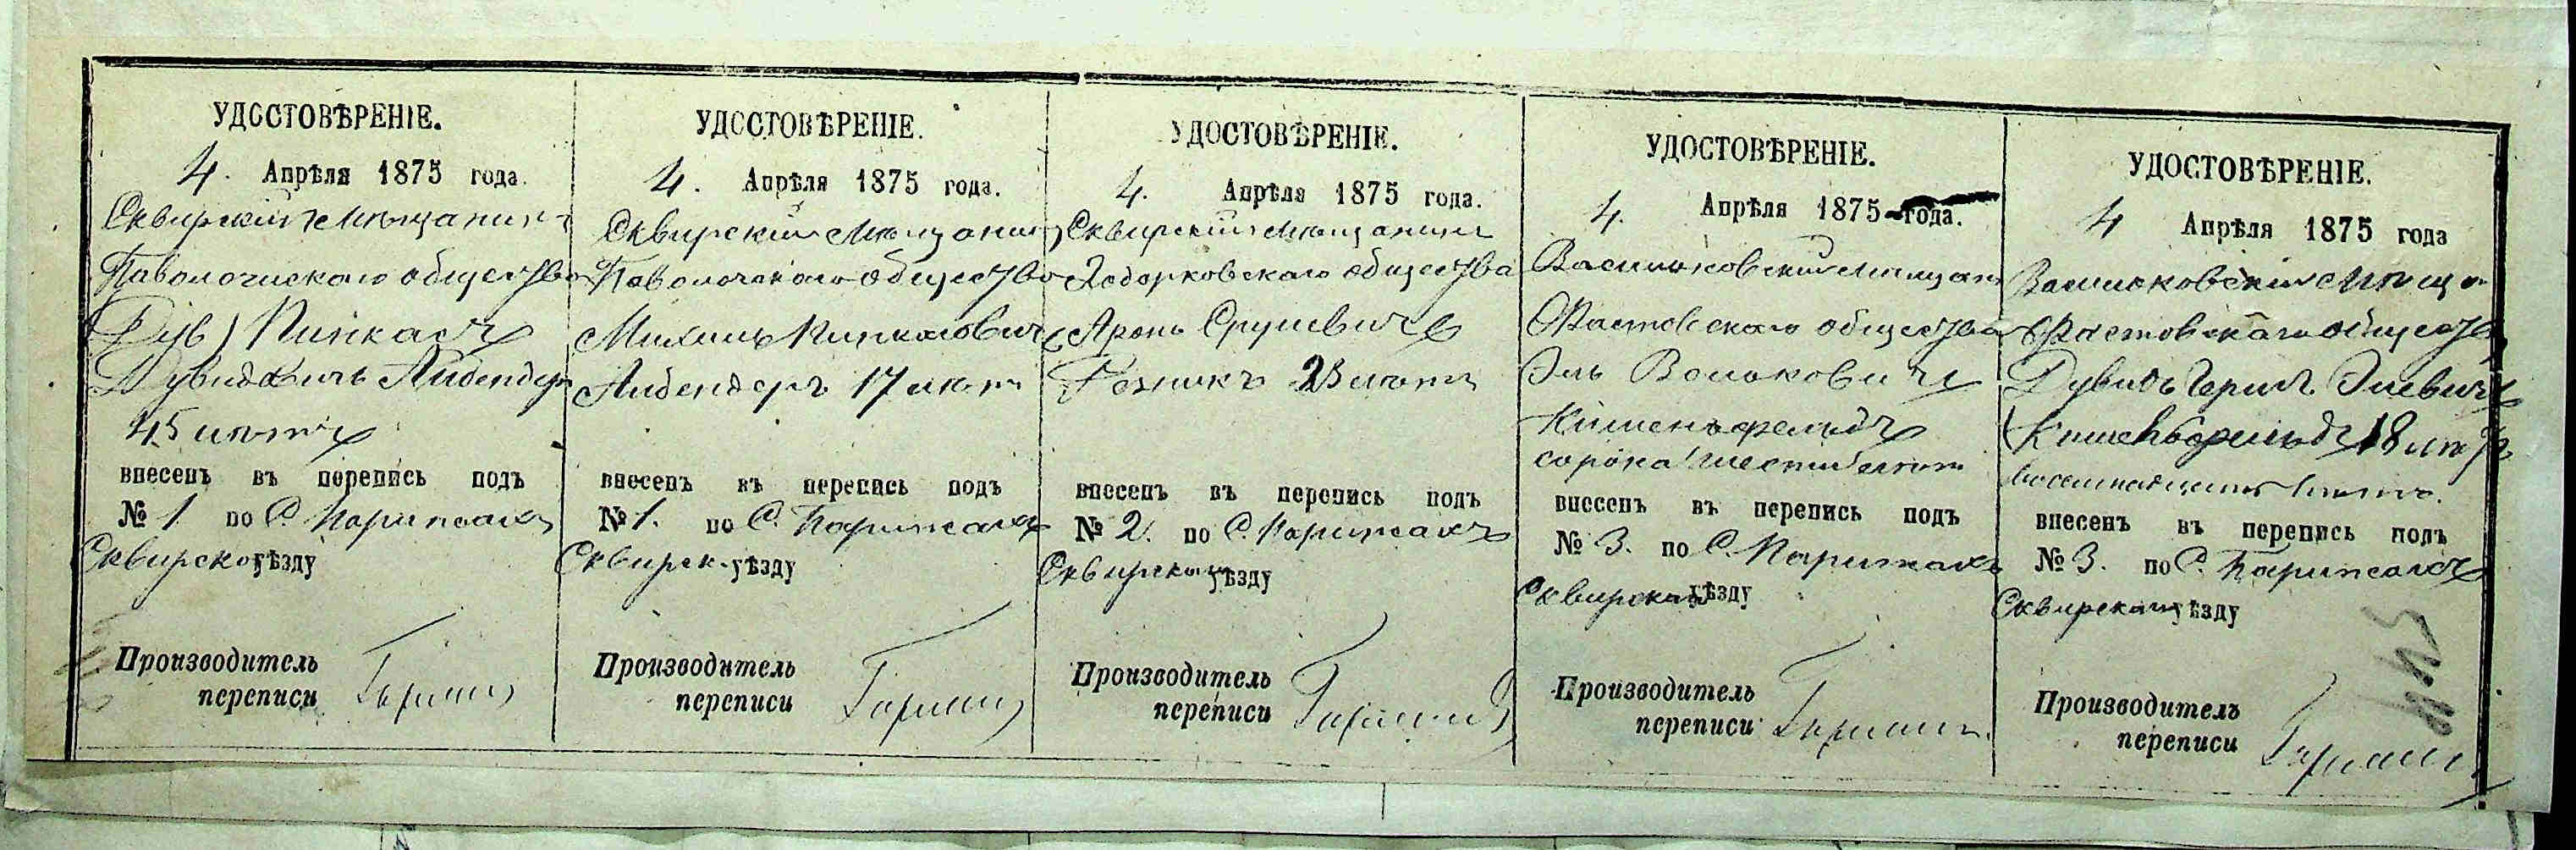 УДОСТОВѢРЕНІЕ.
4. Апрѣля 1875 года.
Сквирскій мѣщанинъ
Паволочискаго общества
Пинкасъ
Дувидовичъ Либендеръ
45 лѣтъ
внесенъ въ перепись подъ
№ 1 по С. Парипсахъ
Сквирском уѣзду
Производитель
переписи
УДОСТОВѢРЕНІЕ.
4. Апрѣля 1875 года.
Сквирскій мѣщанинъ
Паволочскаго общества
Пинкасовичъ
Либендеръ 17 лѣтъ
внесенъ въ перепись подъ
№ 1. по С. Парипсахъ
Сквирск. уѣзду
Производитель
переписи
УДОСТОВѢРЕНІЕ.
4. Апрѣля 1875 года.
Сквирскій мѣщанинъ
Ходорковскаго общества
Аронъ Срулевичъ
Резникъ 23 лѣтъ
внесенъ въ перепись подъ
№ 2. по С. Парипсахъ
Сквирском уѣзду
Производитель
переписи
УДОСТОВѢРЕНІЕ.
4. Апрѣля 1875 года.
Васильковскій мѣщан
Фастовскаго общества
Эль Вольковичъ
Кишеньфельдъ
сорока шести лѣтъ
внесенъ въ перепись подъ
№ 3. по С. Парипсахъ
Сквирском уѣзду
Производитель
переписи
УДОСТОВѢРЕНІЕ.
4 Апрѣля 1875 года
Васильковскій мѣщ
Фастовскаго общества
Дувидъ Герш. Элевичъ
18 лѣтъ
восемнадцать лѣтъ.
внесенъ въ перепись подъ
№ 3. по С. Парипсахъ
Сквирском уѣзду
Производитель
переписи